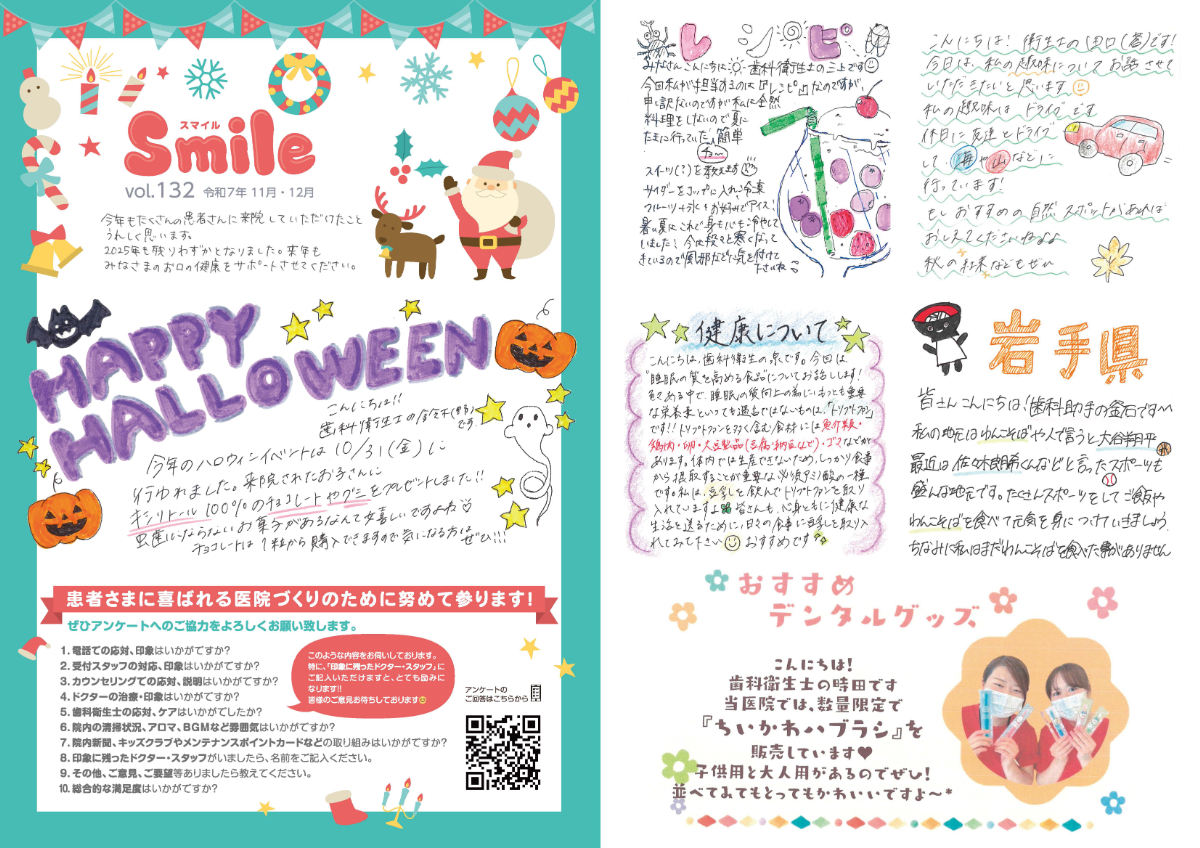 スマイル
Smile
vol.132 令和7年 11月・12月
今年もたくさんの患者さんに来院していただけたこと
うれしく思います。
2025年も残りわずかとなりました。来年も
みなさまのお口の健康をサポートさせてください。
HAPPY
HALLOWEEN
こんにちは!!
歯科衛生士の鈴木
です
今年のハロウィンイベントは10/31(金)に
行われました。来院されたお子さんに
キシリトール100%のチョコレートやグミをプレゼントしました!!
虫歯にならないお菓子があるなんて嬉しいですよね♡
チョコレートは1粒から購入できますので気になる方は
ぜひ!!!
患者さまに喜ばれる医院づくりのために努めて参ります!
ぜひアンケートへのご協力をよろしくお願い致します。
1. 電話での応対、印象はいかがですか?
2. 受付スタッフの対応、印象はいかがですか?
3. カウンセリングでの応対、説明はいかがですか?
4. ドクターの治療・印象はいかがですか?
5. 歯科衛生士の応対、ケアはいかがでしたか?
6. 院内の清掃状況、アロマ、BGMなど雰囲気はいかがですか?
7. 院内新聞、キッズクラブやメンテナンスポイントカードなどの取り組みはいかがですか?
8. 印象に残ったドクター・スタッフがいましたら、名前をご記入ください。
9. その他、ご意見、ご要望等ありましたら教えてください。
10. 総合的な満足度はいかがですか?
このような内容をお伺いしております。
特に、「印象に残ったドクター・スタッフ」に
ご記入いただけますと、とても励みに
なります!!
皆様のご意見お待ちしております
アンケートの
ご回答はこちらから
レシピ
みなさんこんにちは 歯科衛生士の三上です
今回私が担当するのは『レシピ』なのですが、
申し訳ないのですが私は全然
料理をしないので夏に
たまに行っていた簡単
チョ〜
スイーツ(?)を教えます
サイダーをコップに入れ、冷凍
フルーツ+氷+お好みでアイス!
暑い夏にこれで身も心も冷やして
いました!今は段々と寒くなって
きているので風邪などに気を付けて
下さいね
こんにちは!衛生士の田口(茗)です!
今日は、私の趣味についてお話させて
いただきたいと思います
私の趣味はドライブです
休日に友達とドライブ
して、海や山などに
行っています!
もしおすすめの自然スポットがあれば
おしえてくださいねよよ
秋の紅葉などもぜひ
健康について
こんにちは、歯科衛生の泉です。今回は
"睡眠の質を高める食品"についてお話しします!
数ある中で、睡眠の質向上の為にもっとも重要
な栄養素といっても過言ではないものは、「トリプトファン」
です!!トリプトファンを多く含む食材には魚介類・
鶏肉・卵・大豆製品(豆腐・納豆など)・ゴマなどが
あります。体内では生産できないため、しっかり食事
から摂取することが重要な必須アミノ酸の一種
です。私は、豆乳を飲んでトリプトファンを取り
入れています 皆さんも、心身ともに健康な
生活を送るために、日々の食事に豆乳を取り入
れてみて下さい おすすめです
岩手県
皆さんこんにちは!歯科助手の釜石です〜
私の地元はわんこそばや人で言うと大谷翔平
最近は佐々木朗希くんなどと言ったスポーツも
盛んな地元です。たくさんスポーツをしてご飯や
わんこそばを食べて元気を身につけていきましょう
ちなみに私はまだわんこそばを食べた事がありません
おすすめ
デンタルグッズ
こんにちは!
歯科衛生士の時田です
当医院では、数量限定で
『ちいかわハブラシ』を
販売しています♥
子供用と大人用があるのでぜひ!
並べてみてもとってもかわいいですよ〜*